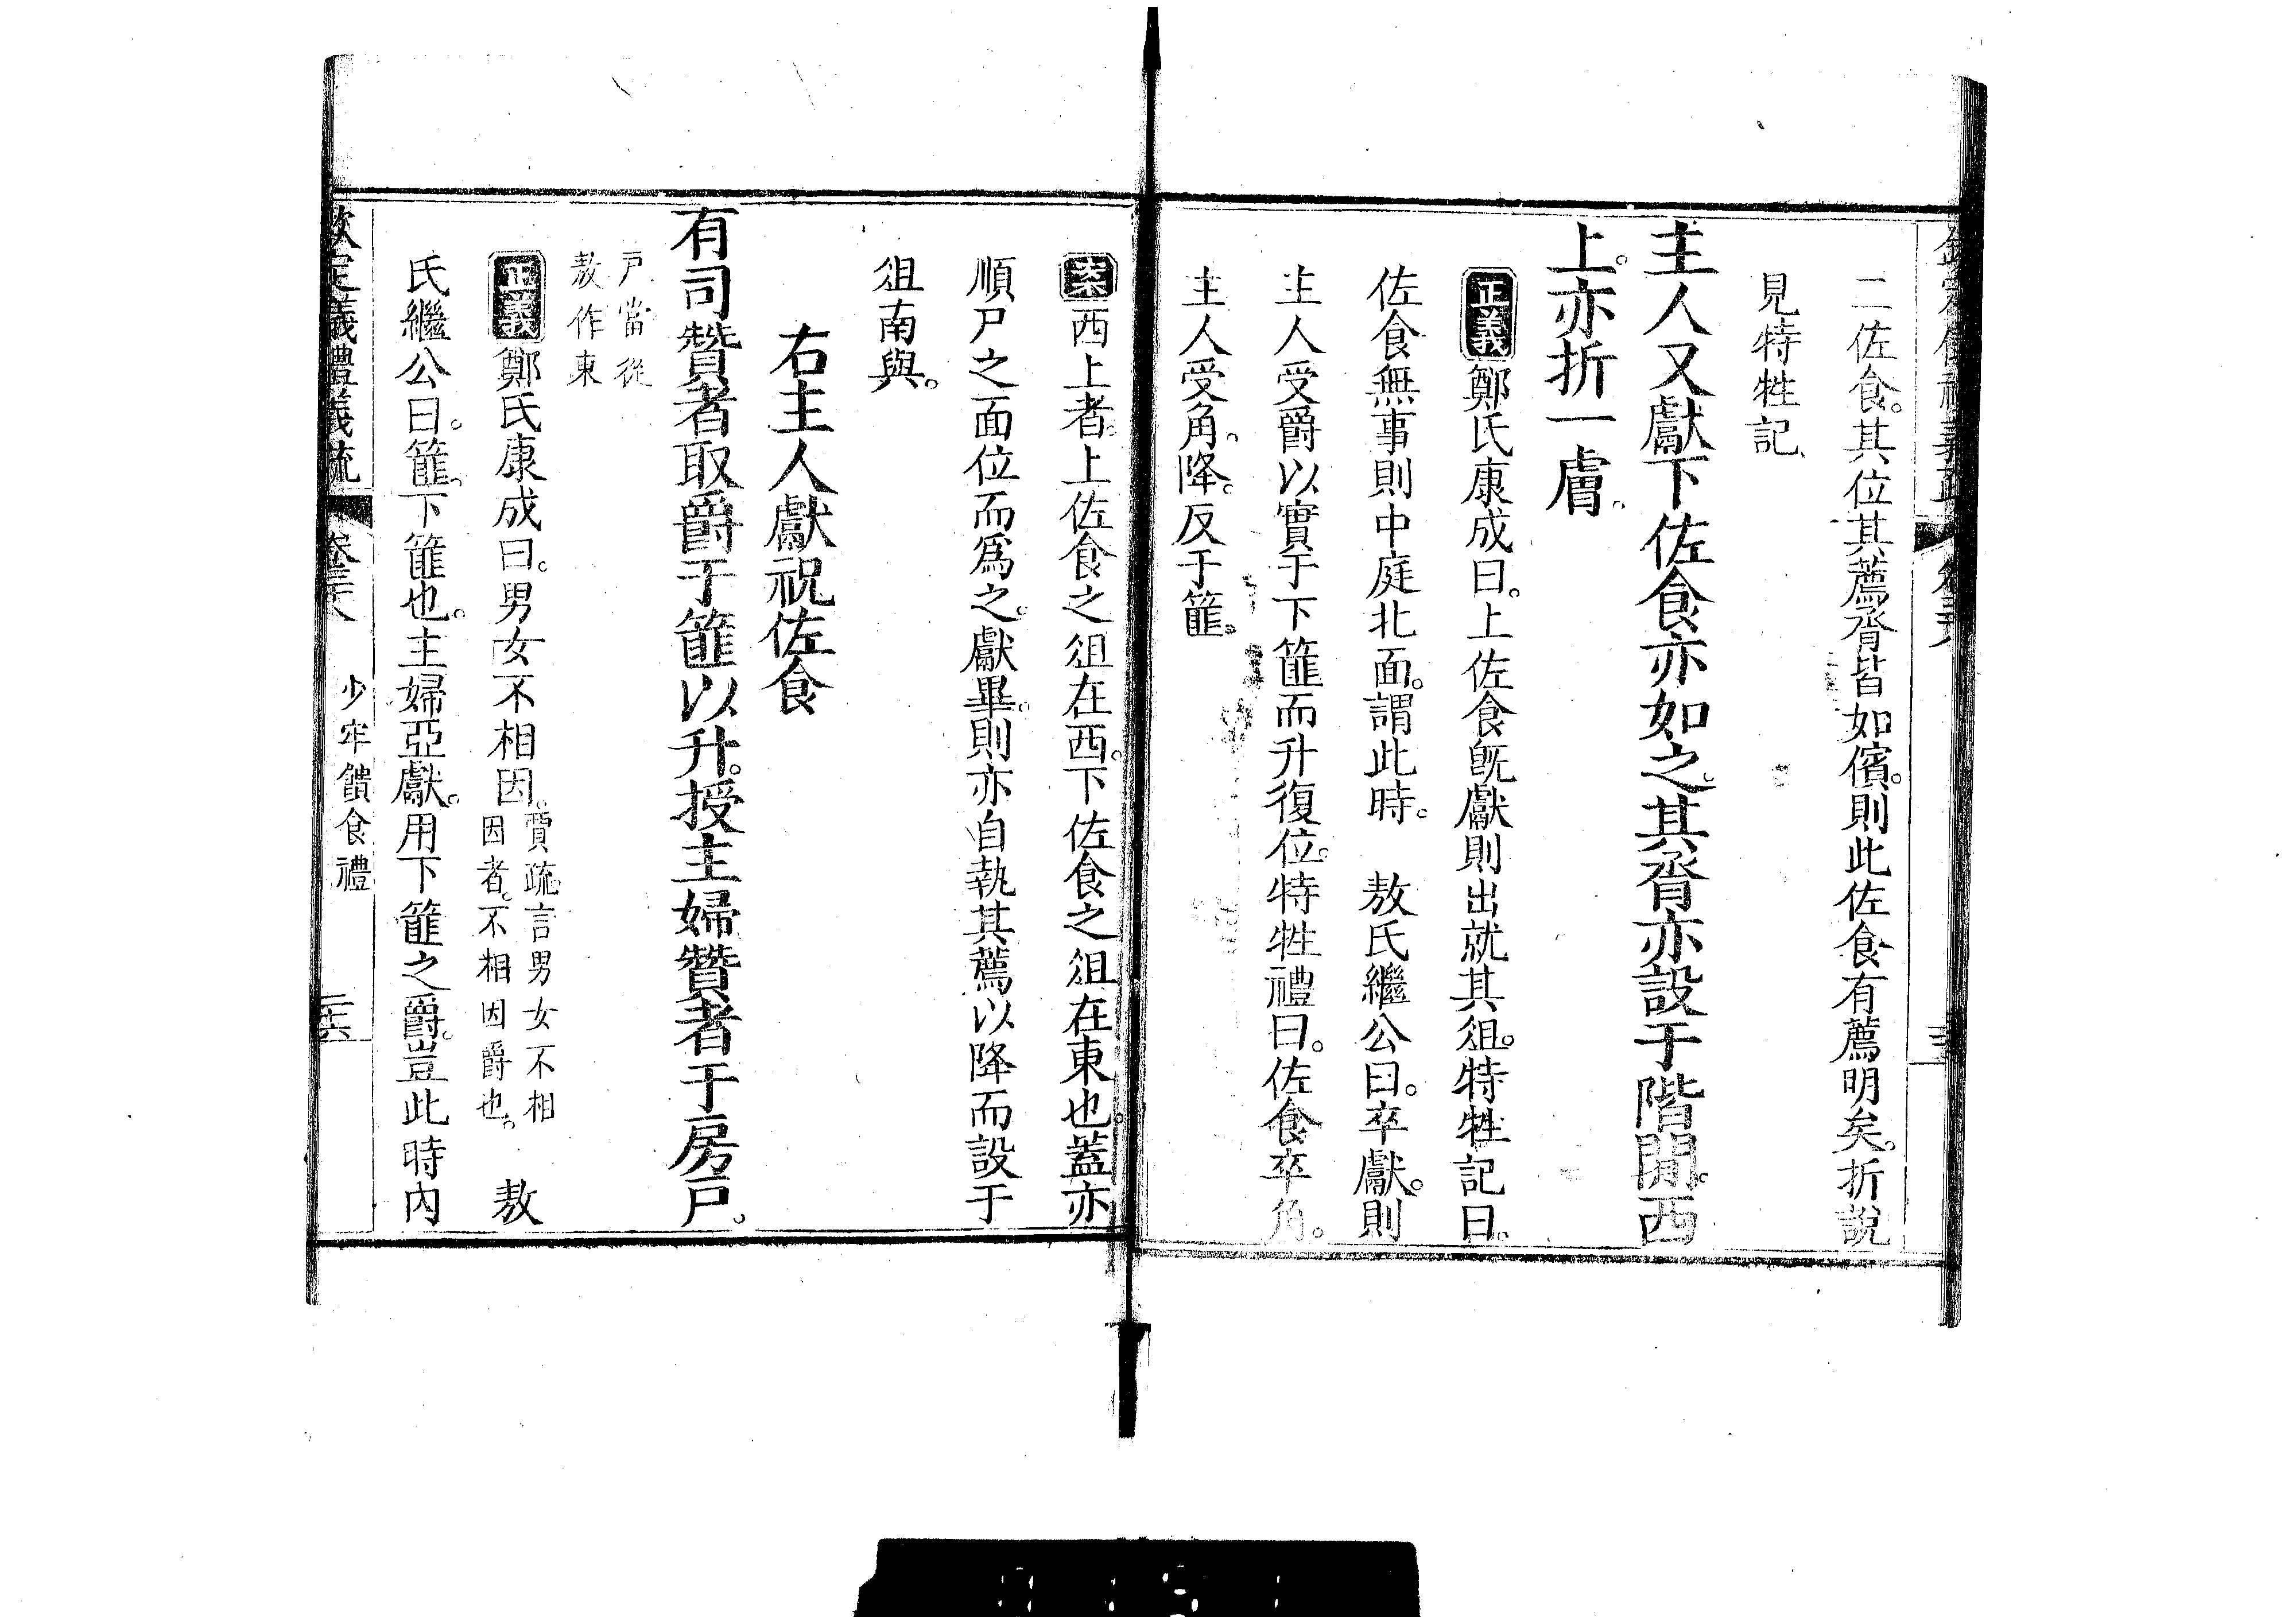 二佐食。其位其薦脀皆如儐。則此佐食有薦明矣。折說
見特牲記
主人又獻下佐食亦如之。其脀亦設于階閒。西
上。亦折一膚。
正義鄭氏康成曰。上佐食旣獻則出就其俎。特牲記曰。
佐食無事則中庭北面。謂此時。 敖氏繼公曰。卒獻。則
主人受爵以實于下篚而升復位。特牲禮曰。佐食卒角。
主人受角。降。反于篚。
案西上者。上佐食之俎在西。下佐食之俎在東也。蓋亦
順尸之面位而爲之。獻畢。則亦自執其薦以降而設于
俎南與。
右主人獻祝佐食
有司贊者取爵于篚以升。授主婦贊者于房戶。
戶當從
敖作東
正義鄭氏康成曰。男女不相因。賈疏。言男女不相
因者。不相因爵也。 敖
氏繼公曰。篚。下篚也。主婦亞獻。用下篚之爵。豈此時內
欽定儀禮義疏 卷三十八 少牢饋食禮 三六